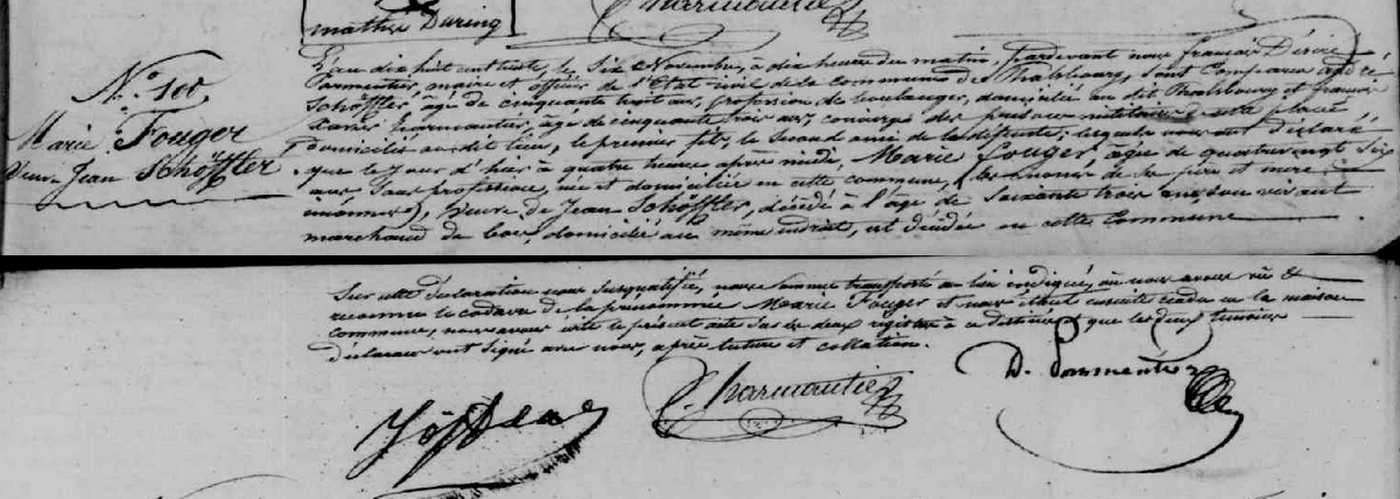 mathis During
Charmoutier
N.° 100
Marie Fouger
Veuve Jean Schöffler
L'an dix huit cent trente, le six Novembre, à dix heures du matin, Pardevant nous françois Désiré
Parmentier, maire et officier de l'Etat civil de la commune de Phalsbourg, sont comparus andré
Schöffler âgé de cinquante huit ans, profession de boulanger, domicilié au dit Phalsbourg et françois
Xavier harmoutier, âgé de cinquante trois ans, concierge des prisons militaires de cette place
domiciliés au dit lieu, le premier fils, le second ami de la défunte; lesquels nous ont déclaré
que le jour d'hier à quatre heures après midi, Marie Fouger, âgée de quatrevingt six
ans, sans profession, née et domiciliée en cette commune, (les noms de ses père et mère
), veuve de Jean Schöffler, décédé à l'âge de soixante trois ans, son vivant
marchand de bois, domicilié au même endroit, est décédée en cette Commune
Sur cette déclaration nous susqualifié, nous sommes transporté au lieu indiqué, où nous avons vû &
reconnu le cadavre de la prénommée Marie Fouger et nous étant ensuite rendu en la maison
commune, nous avons écrit le présent acte sur les deux registres à ce destinés et que les deux témoins
déclarans ont signé avec nous, après lecture et collation.
D. Parmentier
Charmoutier